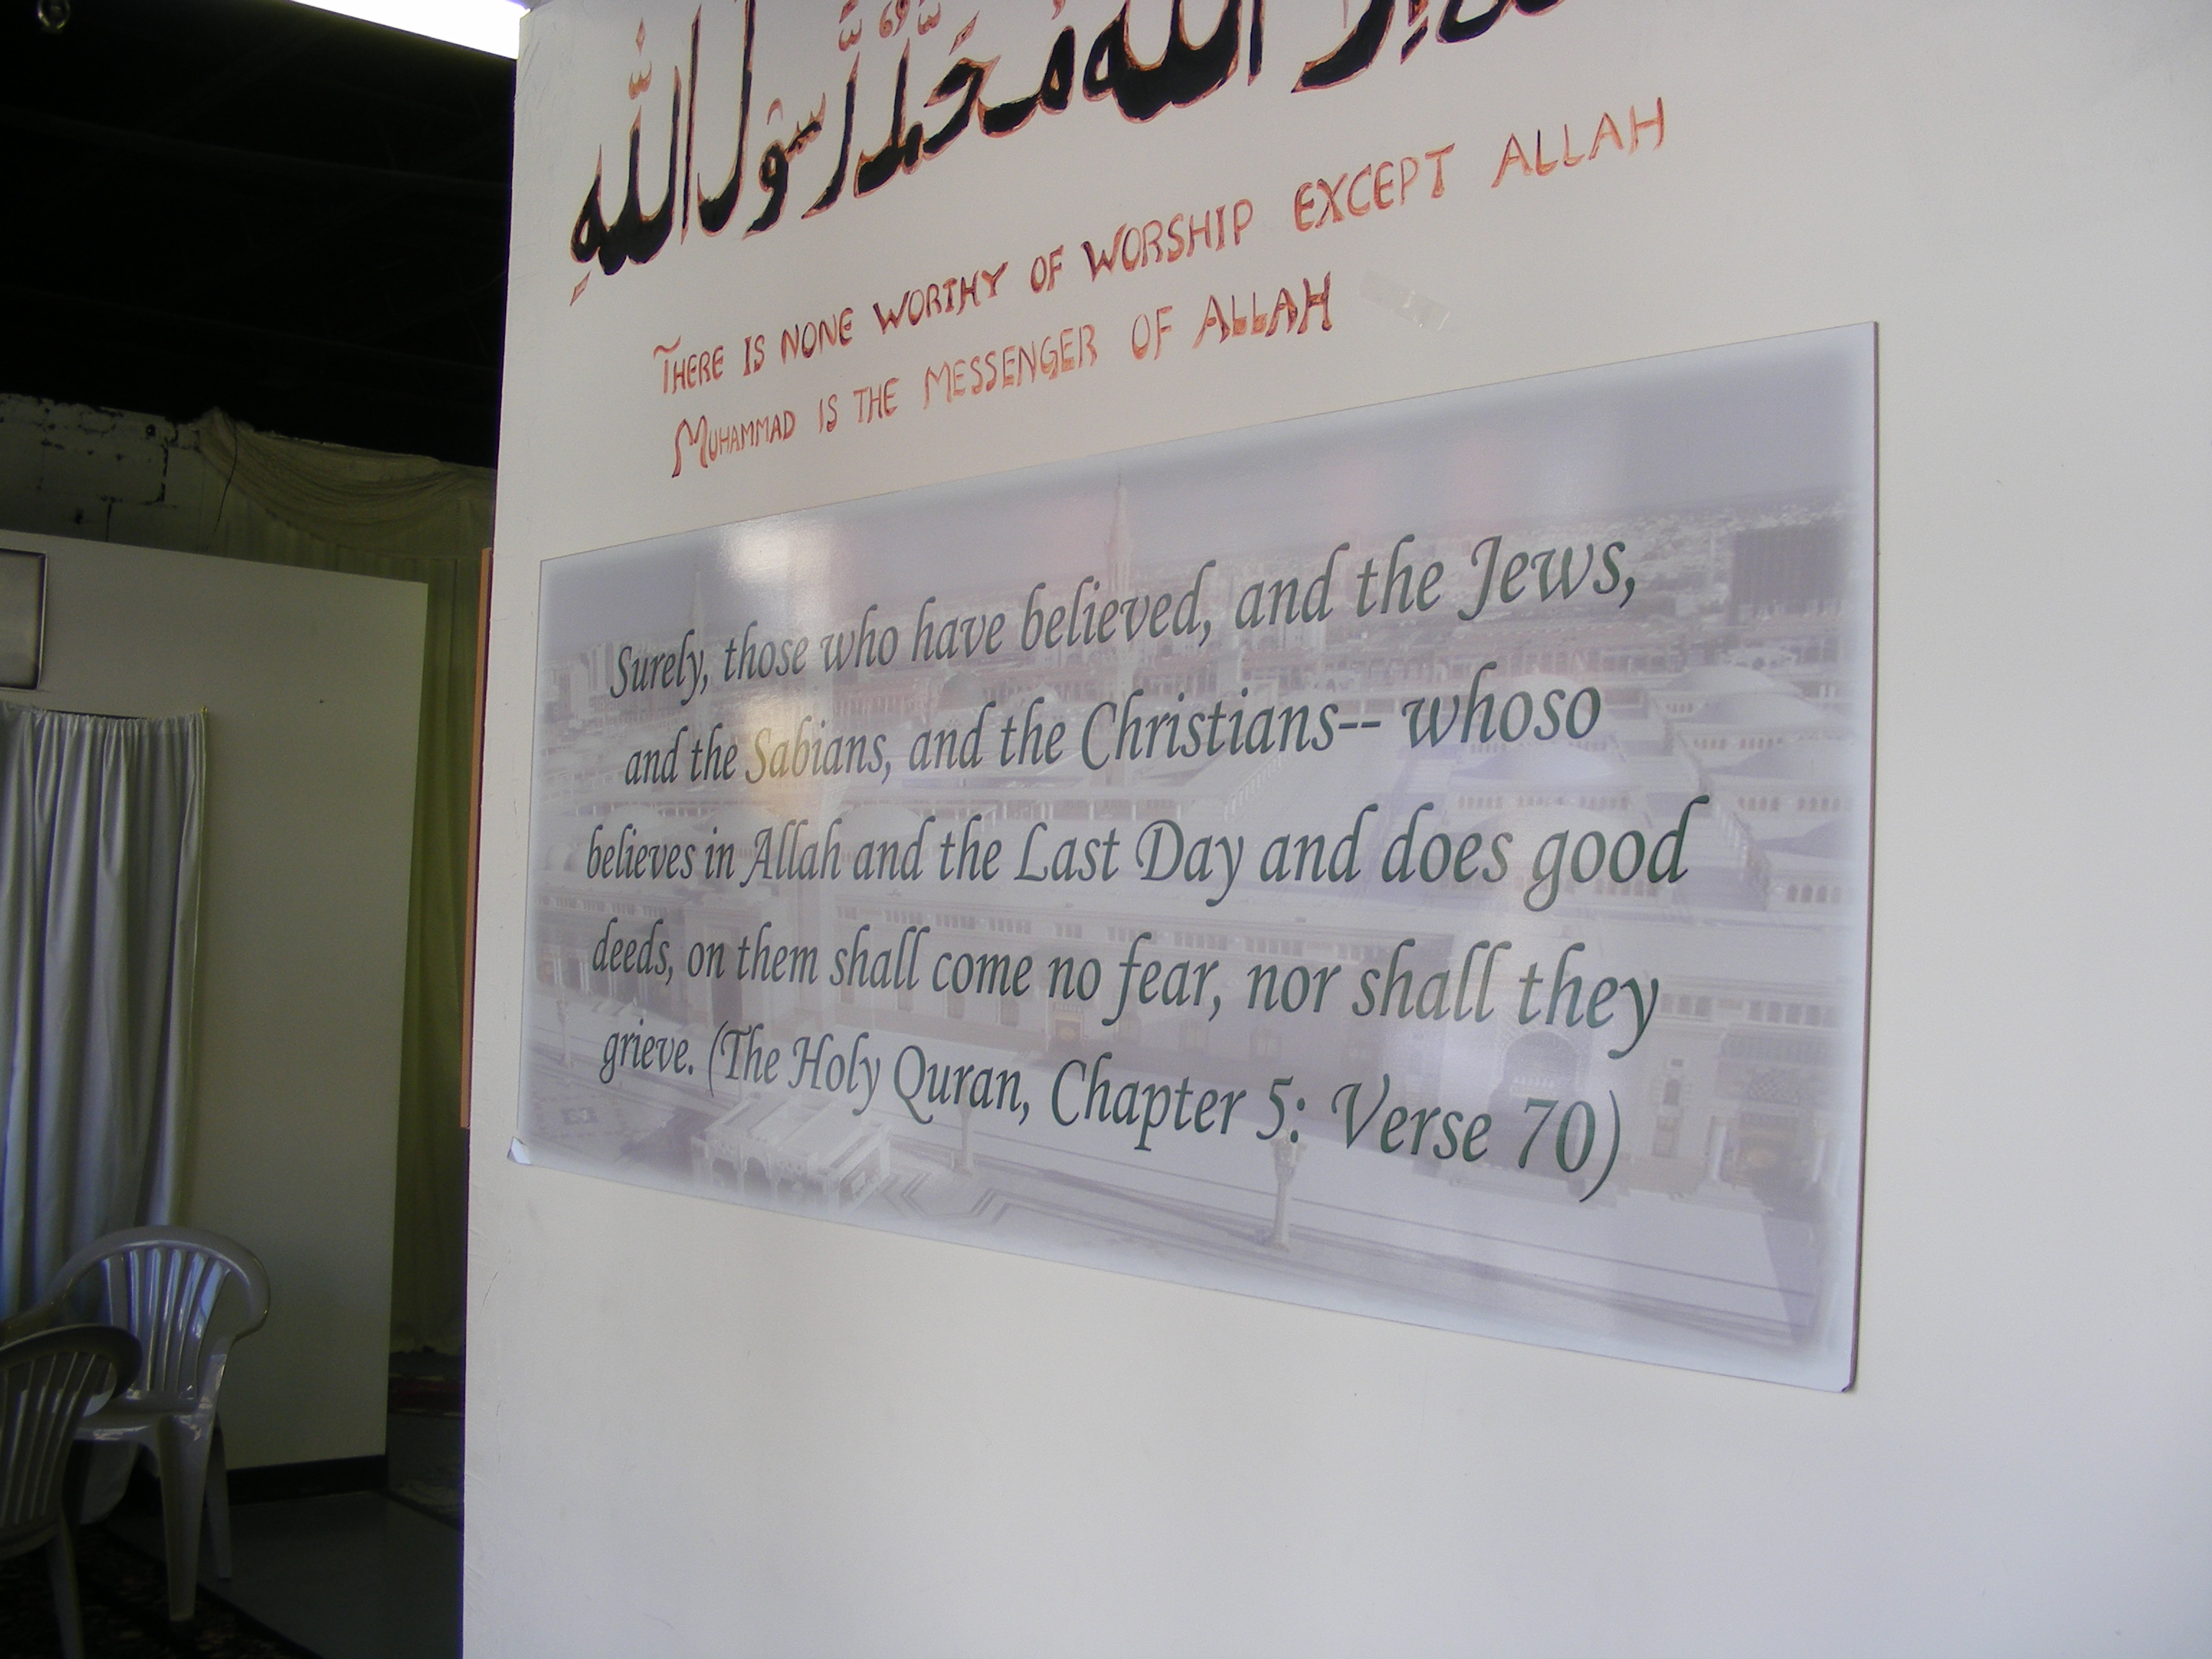 الله محمد رسول الله
THERE IS NONE WORTHY OF WORSHIP EXCEPT ALLAH
MUHAMMAD IS THE MESSENGER OF ALLAH
Surely, those who have believed, and the Jews,
and the Sabians, and the Christians-- whoso
believes in Allah and the Last Day and does good
deeds, on them shall come no fear, nor shall they
grieve. (The Holy Quran, Chapter 5: Verse 70)